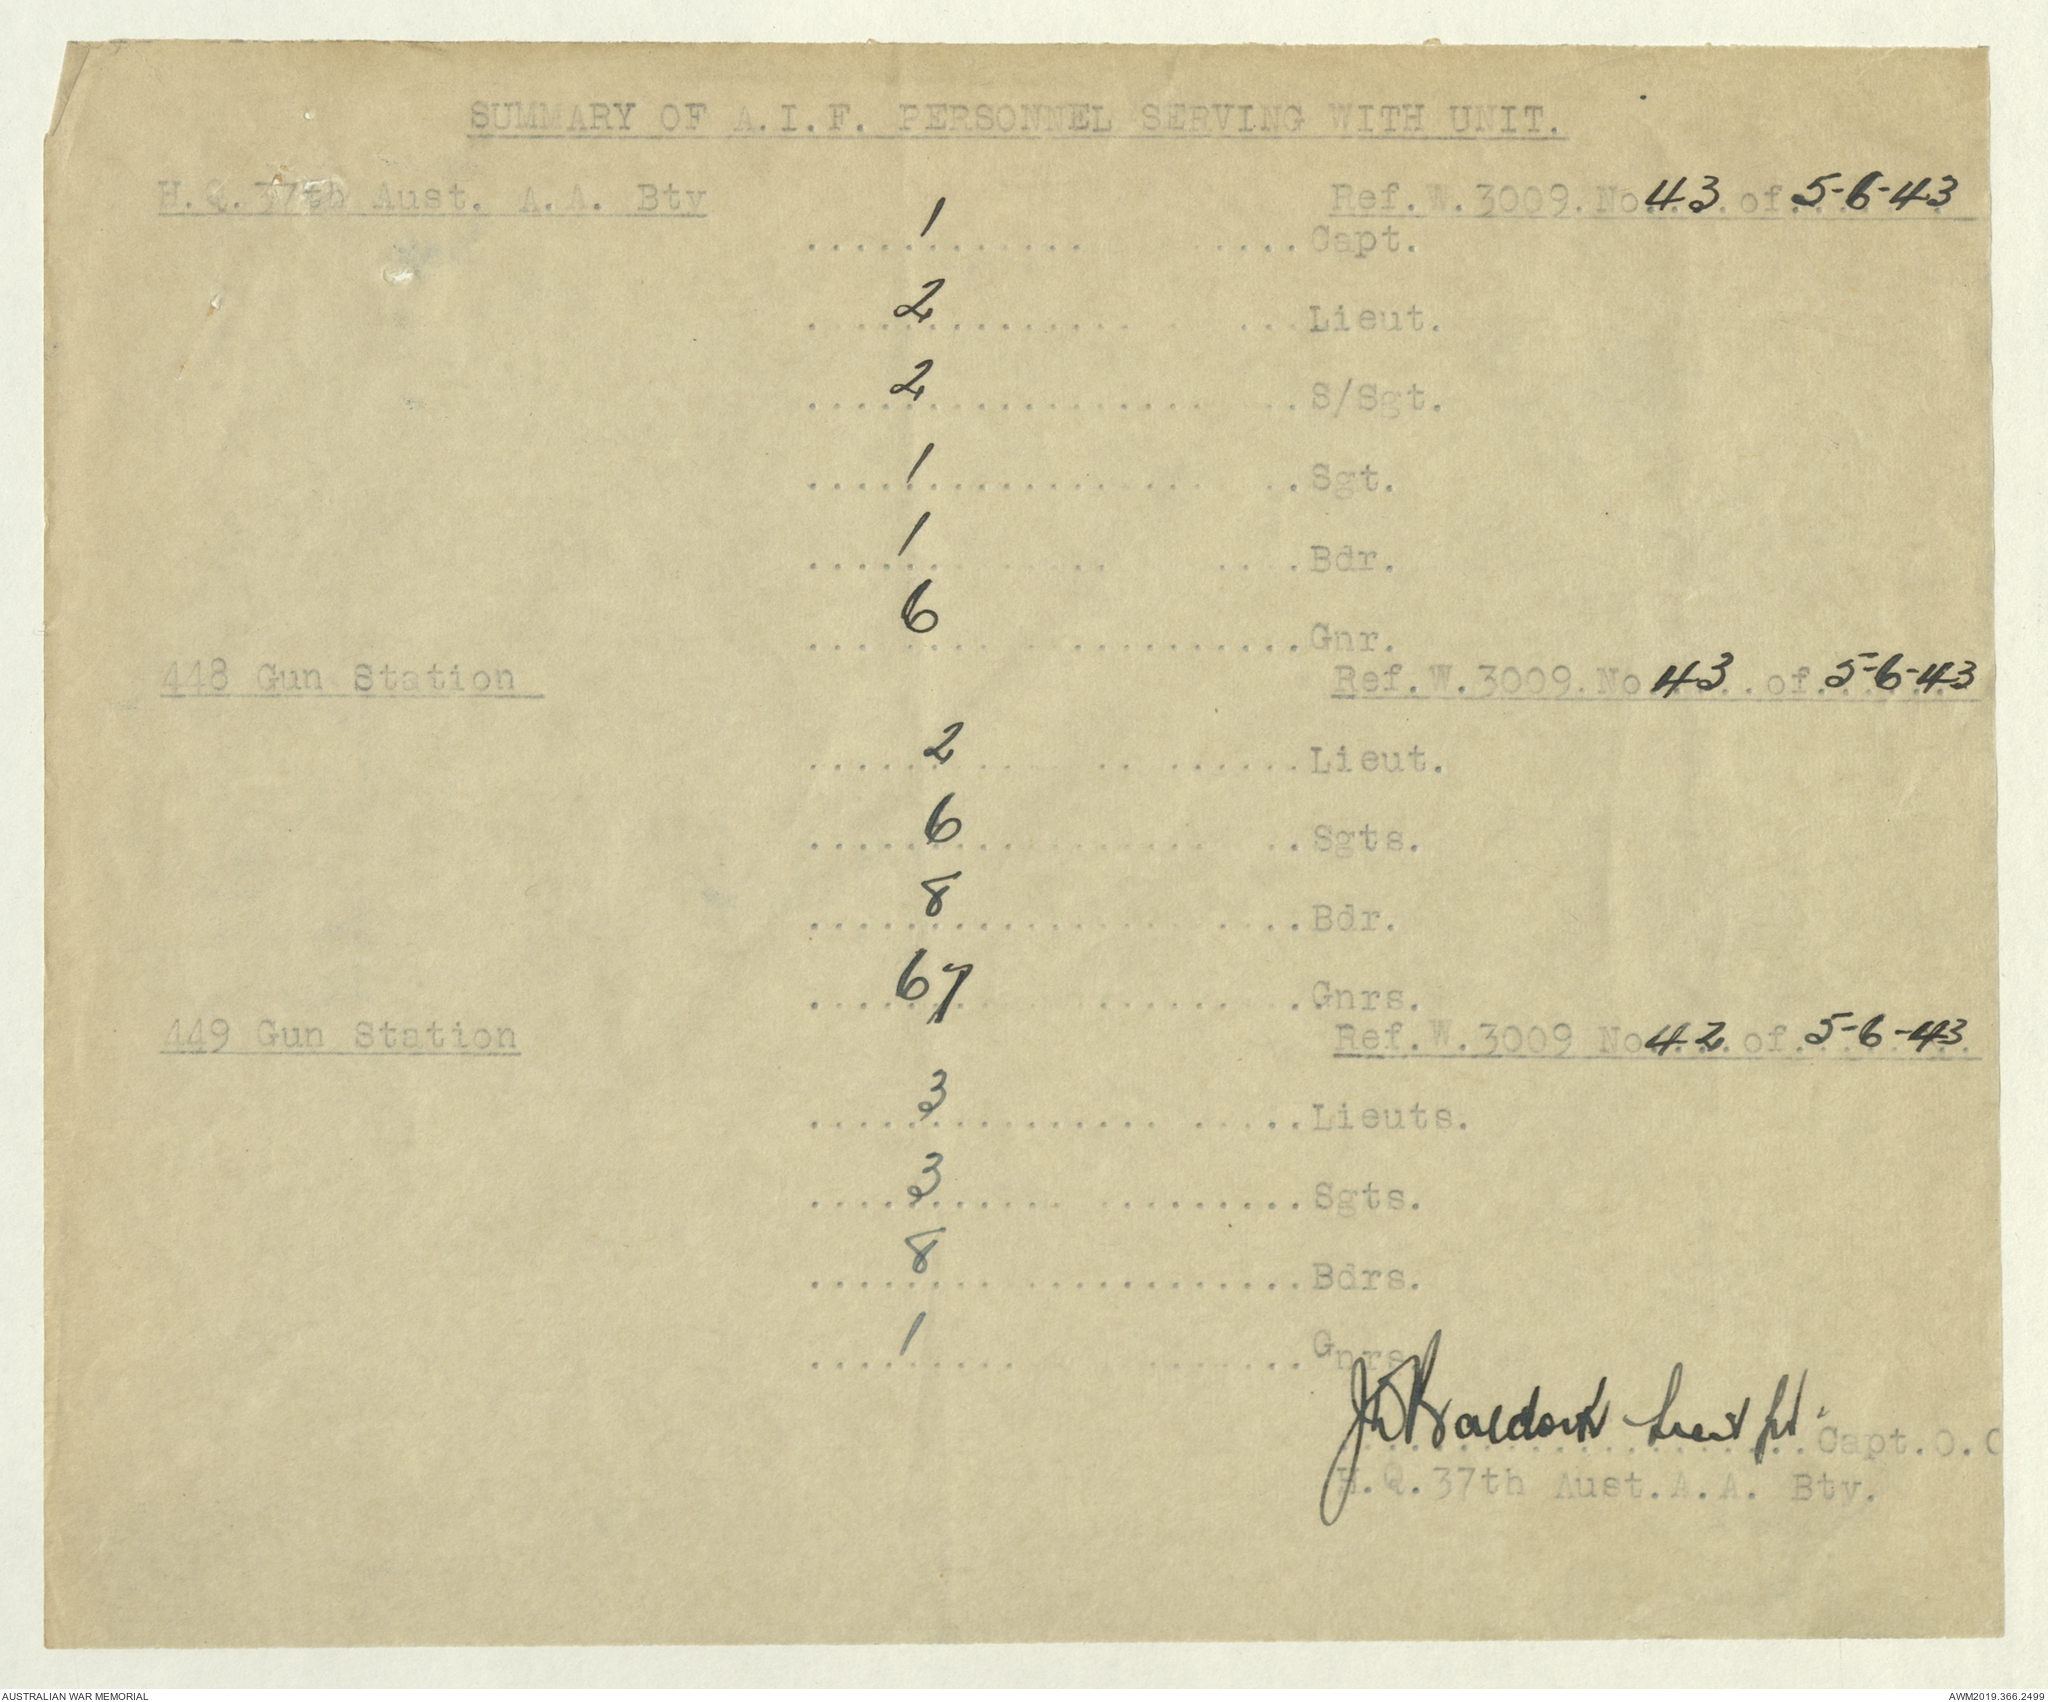 SUMMARY OF A.I.F. PERSONNEL SERVING WITH UNIT.
H.Q.37th Aust. A.A. Bty Ref.W.3009.No 43 of 5-6-43
1 Capt.
2 Lieut.
2 S/Sgt.
1 Sgt.
1 Bdr.
6 Gnr.
448 Gun Station Ref.W.3009.No 43 of 5-6-43
2 Lieut.
6 Sgts.
8 Bdr.
67 Gnrs.
449 Gun Station Ref.W.3009 No 42 of 5-6-43
3 Lieuts.
3 Sgts.
8 Bdrs.
1 Gnrs
Lieut for Capt.O.C
H.Q.37th Aust.A.A. Bty.
AUSTRALIAN WAR MEMORIAL AWM2019.366.2499